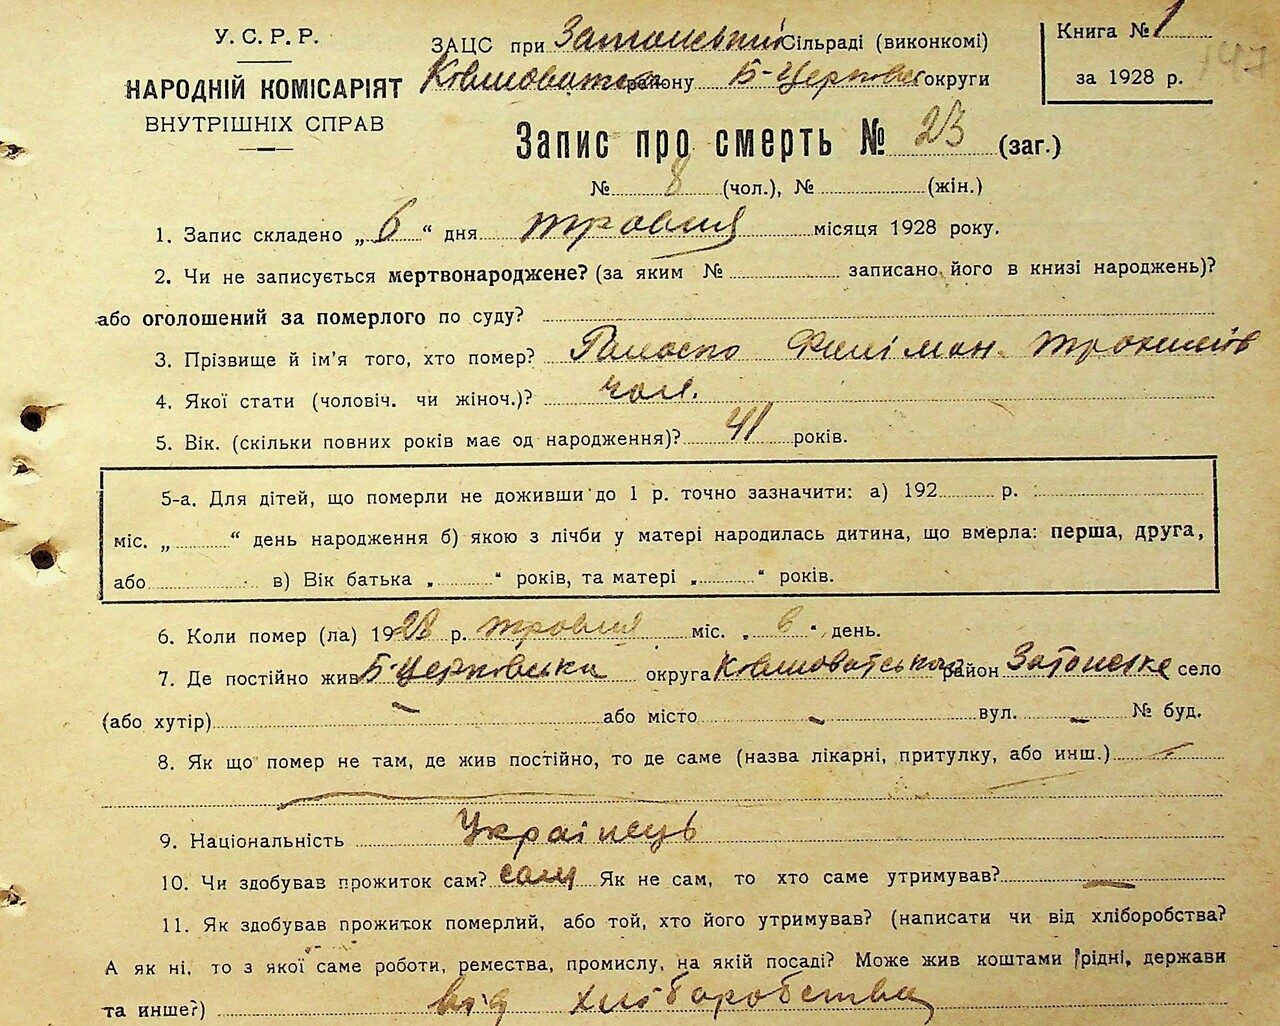 У.С.Р.Р.
НАРОДНІЙ КОМІСАРІЯТ
ВНУТРІШНІХ СПРАВ
ЗАЦС при Затонський Сільраді (виконкомі)
району Б-Церковс округи
Книга № 1
за 1928 р.
147
Запис про смерть № 23 (заг.)
№ 8 (чол.), № (жін.)
1. Запис складено „6“ дня травня місяця 1928 року.
2. Чи не записується мертвонароджене? (за яким № записано його в книзі народжень)?
або оголошений за померлого по суду?
3. Прізвище й ім'я того, хто помер? Филімон
4. Якої стати (чоловіч. чи жіноч.)? чол.
5. Вік. (скільки повних років має од народження)? 41 років.
5-а. Для дітей, що померли не доживши до 1 р. точно зазначити: а) 192 р.
міс. „ “ день народження б) якою з лічби у матері народилась дитина, що вмерла: перша, друга,
або в) Вік батька „ “ років, та матері „ “ років.
6. Коли помер (ла) 1928 р. травня міс. „6“ день.
7. Де постійно жив Б-Церковська округа Ковшоватська район Затонське село
(або хутір) - або місто - вул. - № буд.
8. Як що помер не там, де жив постійно, то де саме (назва лікарні, притулку, або инш.) -
9. Національність Українець
10. Чи здобував прожиток сам? сам Як не сам, то хто саме утримував? -
11. Як здобував прожиток померлий, або той, хто його утримував? (написати чи від хліборобства?
А як ні, то з якої саме роботи, ремества, промислу, на якій посаді? Може жив коштами рідні, держави
та инше?) від хліборобства